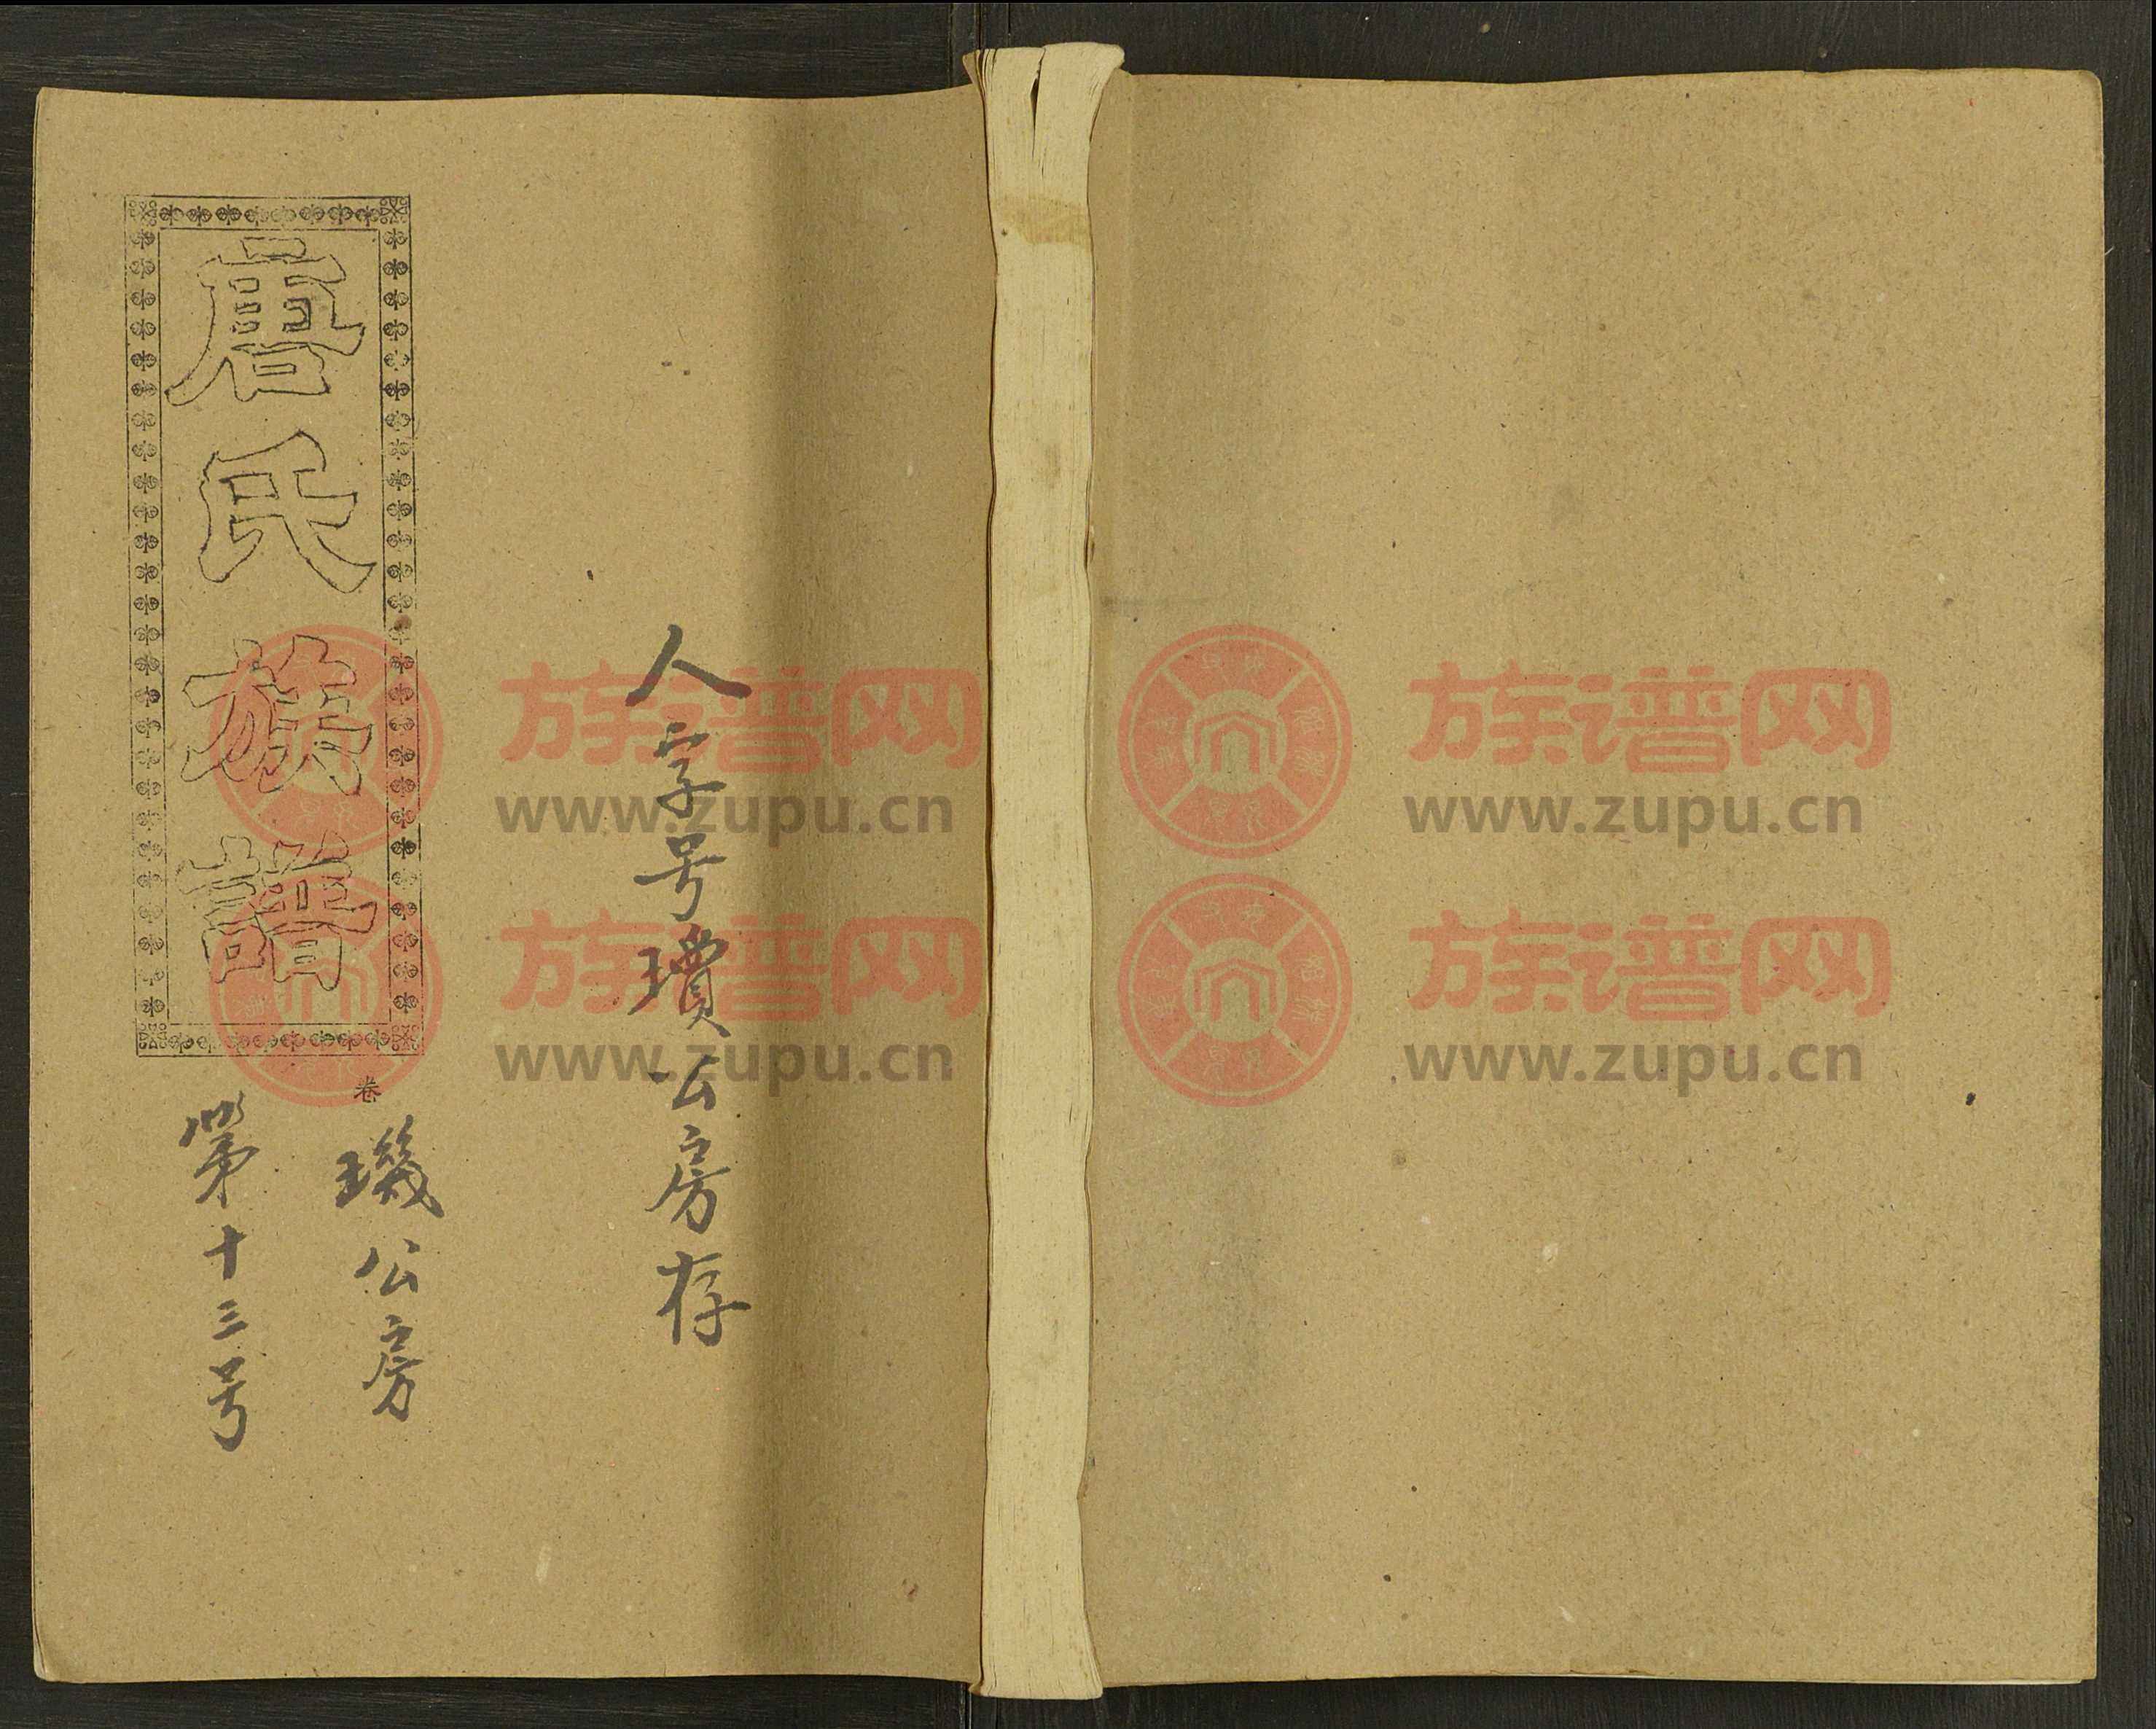 人字号瓚公房存
唐氏族譜
卷
璣公房
第十三号
族谱网
www.zupu.cn
族谱网
www.zupu.cn
族谱网
www.zupu.cn
族谱网
www.zupu.cn